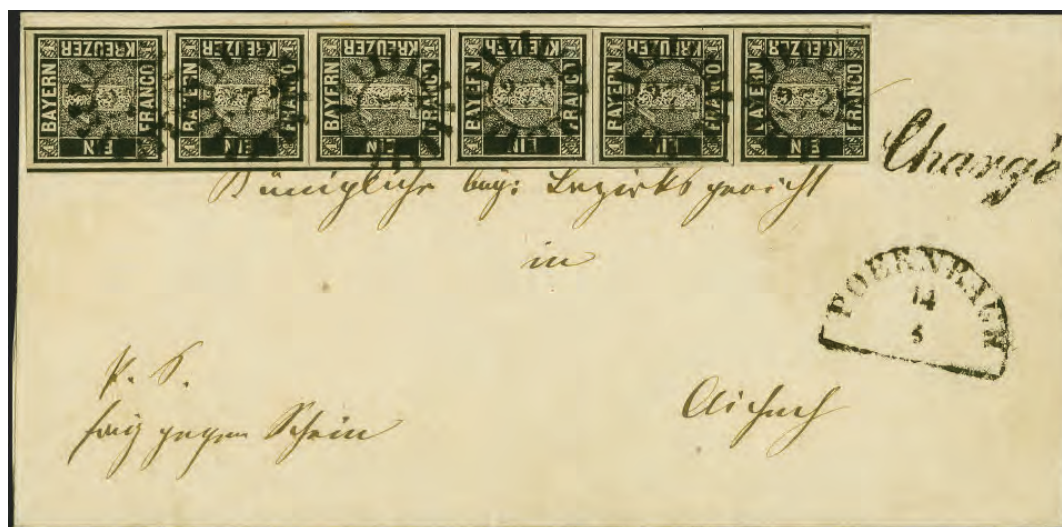 BAYERN KREUZER FRANCO EIN BAYERN KREUZER FRANCO EIN BAYERN KREUZER FRANCO EIN BAYERN KREUZER FRANCO EIN BAYERN KREUZER FRANCO EIN BAYERN KREUZER FRANCO EIN
272
Chargé
Königliche bay: Bezirksgericht
in
POEENBACH
14
5
p. S.
frei gegen Schein
Aichach